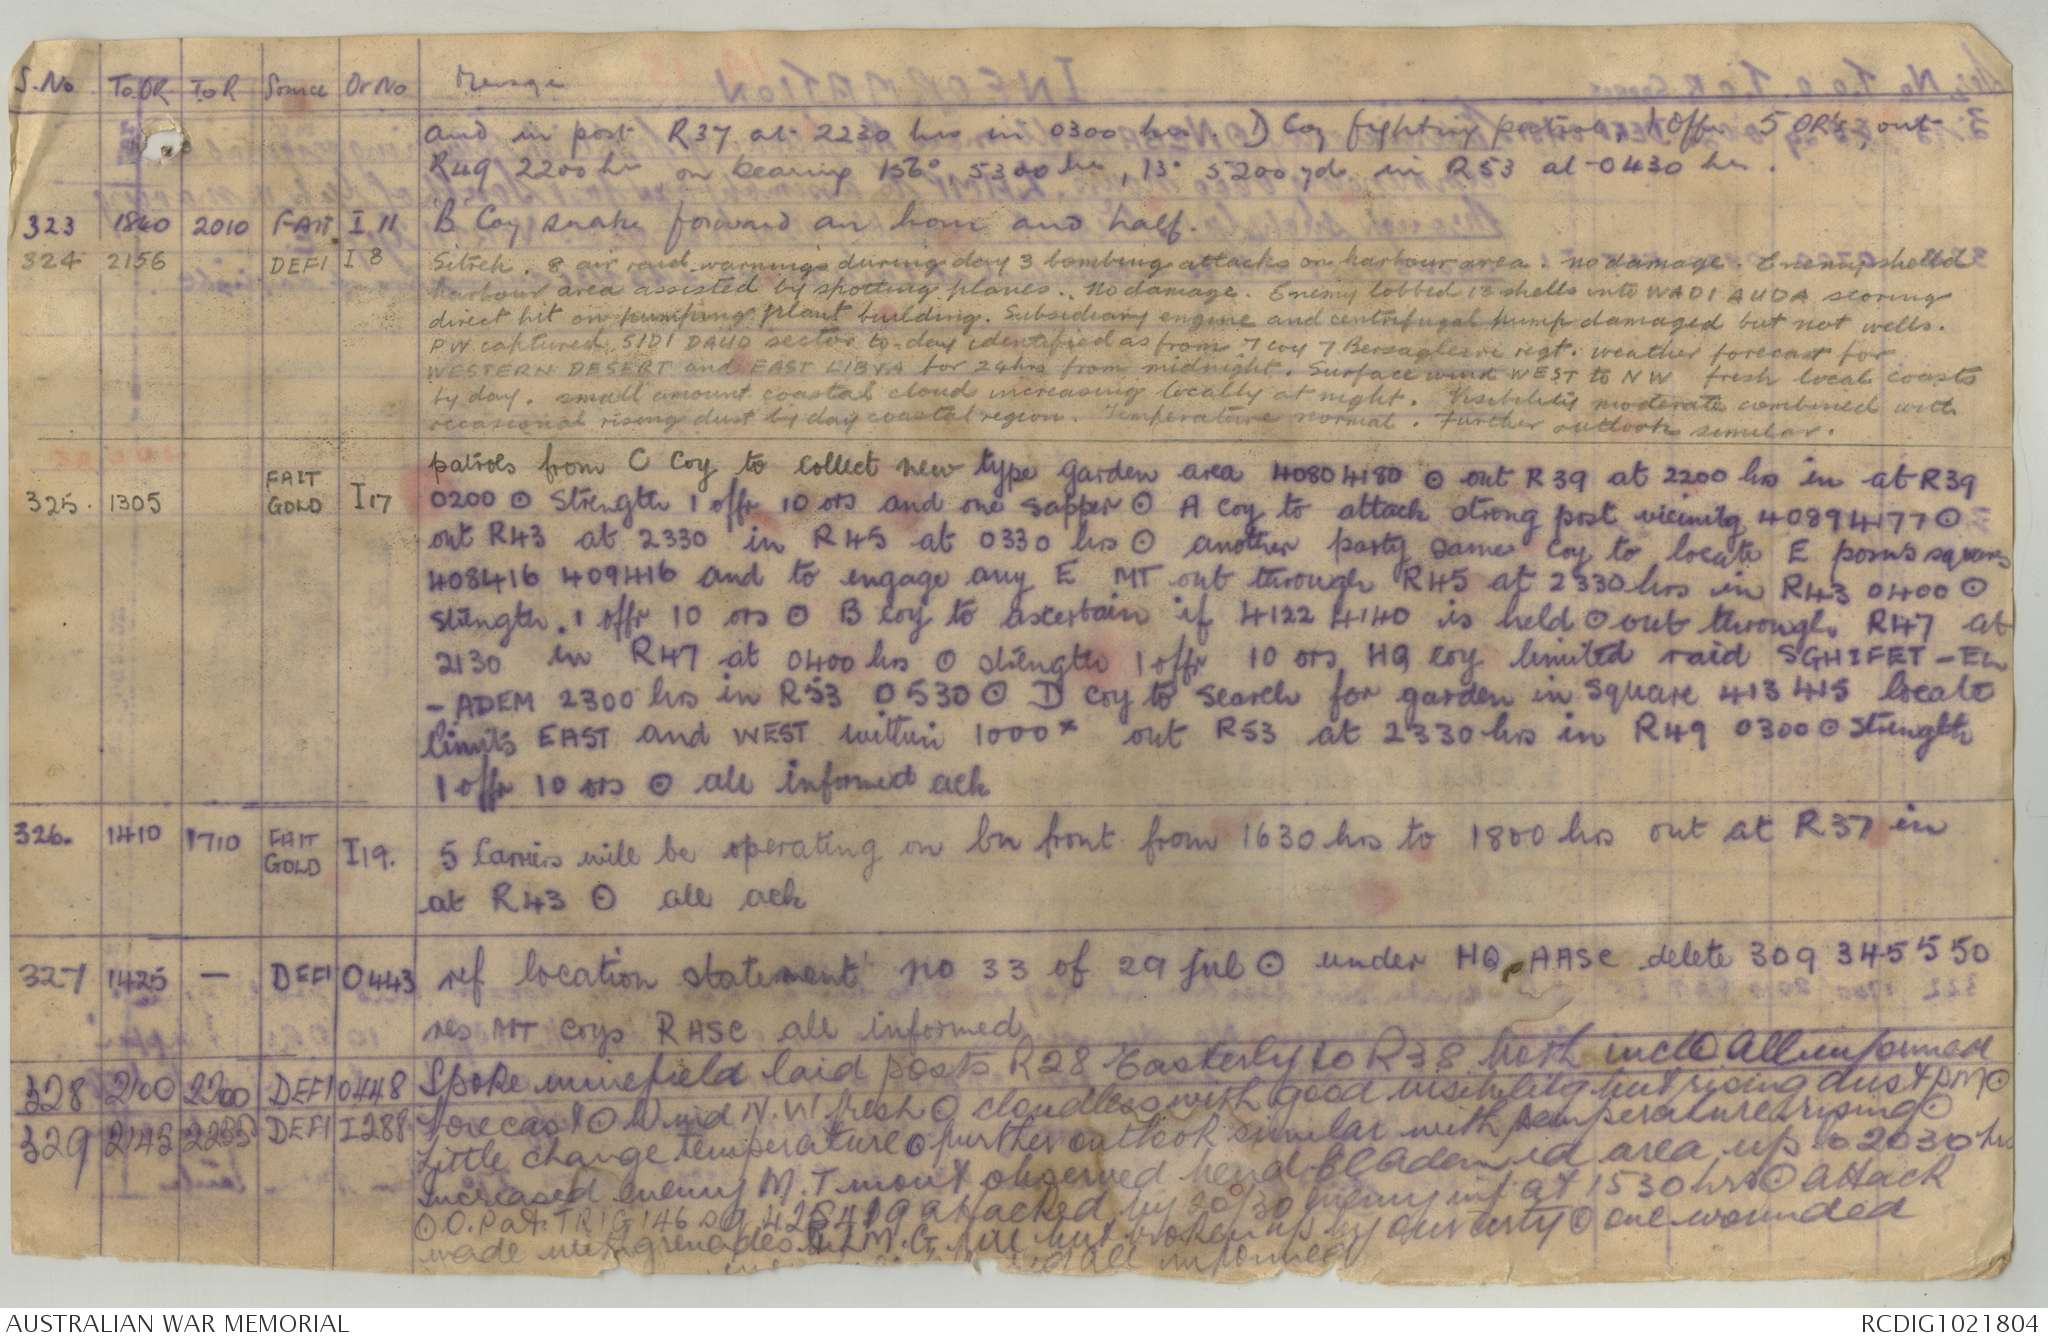 S.No ToOR ToR Source Or No Message
and in post R37 at 2230 hrs in 0300 hrs. D Coy fighting patrol 1 Offr 5 OR's out
R49 2200 hr on bearing 156°, 5300 , 13° 5200 yds in R53 at 0430 hr.
323 1840 2010 FAIT I 11 "B" Coy snake forward an hour and half.
324 2156 DEFI I 8 Sitreh. 8 air raid warnings during day 3 bombing attacks on harbour area. no damage. Enemy shelled
harbour area assisted by spotting planes. No damage. Enemy lobbed 13 shells into WADI AUDA scoring
direct hit on pumping plant building. Subsidiary engine and centrifugal pump damaged but not wells.
PW captured SIDI DAUD sector to-day identified as from 7 coy 7 Bersaglieri regt. weather forecast for
WESTERN DESERT and EAST LIBYA for 24hrs from midnight. Surface wind WEST to NW fresh local coasts
by day. small amount coastal cloud increasing locally at night. Visibility moderate combined with
occasional rising dust by day coastal region. Temperature normal. Further outlook similar.
325. 1305 FAIT GOLD I17 patrols from C Coy to collect new type garden area 40804180 ⊙ out R39 at 2200 hrs in at R39
0200 ⊙ Strength 1 offr 10 ors and one sapper ⊙ A Coy to attack strong post vicinity 40894177 ⊙
out R43 at 2330 in R45 at 0330 hrs ⊙ another party same Coy to locate E posns squares
408416 409416 and to engage any E MT out through R45 at 2330 hrs in R43 0400 ⊙
Strength. 1 offr 10 ors ⊙ B coy to ascertain if 4122 4140 is held ⊙ out through R47 at
2130 in R47 at 0400 hrs ⊙ strength 1 offr 10 ors HQ coy limited raid SGHIFET - EL
- ADEM 2300 hrs in R53 0530 ⊙ D coy to search for garden in square 413 415 locate
limits EAST and WEST within 1000x out R53 at 2330 hrs in R49 0300 ⊙ strength
1 offr 10 ors ⊙ all informed ack
326. 1410 1710 FAIT GOLD I19. 5 Carriers will be operating on bn front from 1630 hrs to 1800 hrs out at R37 in
at R43 ⊙ all ack
327 1425 — DEFI O443 ref location statement no 33 of 29 jul ⊙ under HQ AASC delete 309 345 550
res MT coys RASC all informed
328 2100 2200 DEFI O448 Spoke minefield laid posts R28 Easterly to R38 both incl ⊙ All informed
329 2143 2235 DEFI I288 Forecast ⊙ Wind N.W fresh ⊙ cloudless with good visibility but rising dust PM ⊙
Little change temperature ⊙ further outlook similar with temperature rising ⊙
increased enemy M.T movt observed bend El Adem rd area up to 2030 hrs
⊙ O.Pat. TRIG 146 sq 425419 attacked by 20/30 enemy inf at 1530 hrs ⊙ attack
made with grenades & L M.G fire but broken up by our arty ⊙ one wounded
all informed
AUSTRALIAN WAR MEMORIAL RCDIG1021804